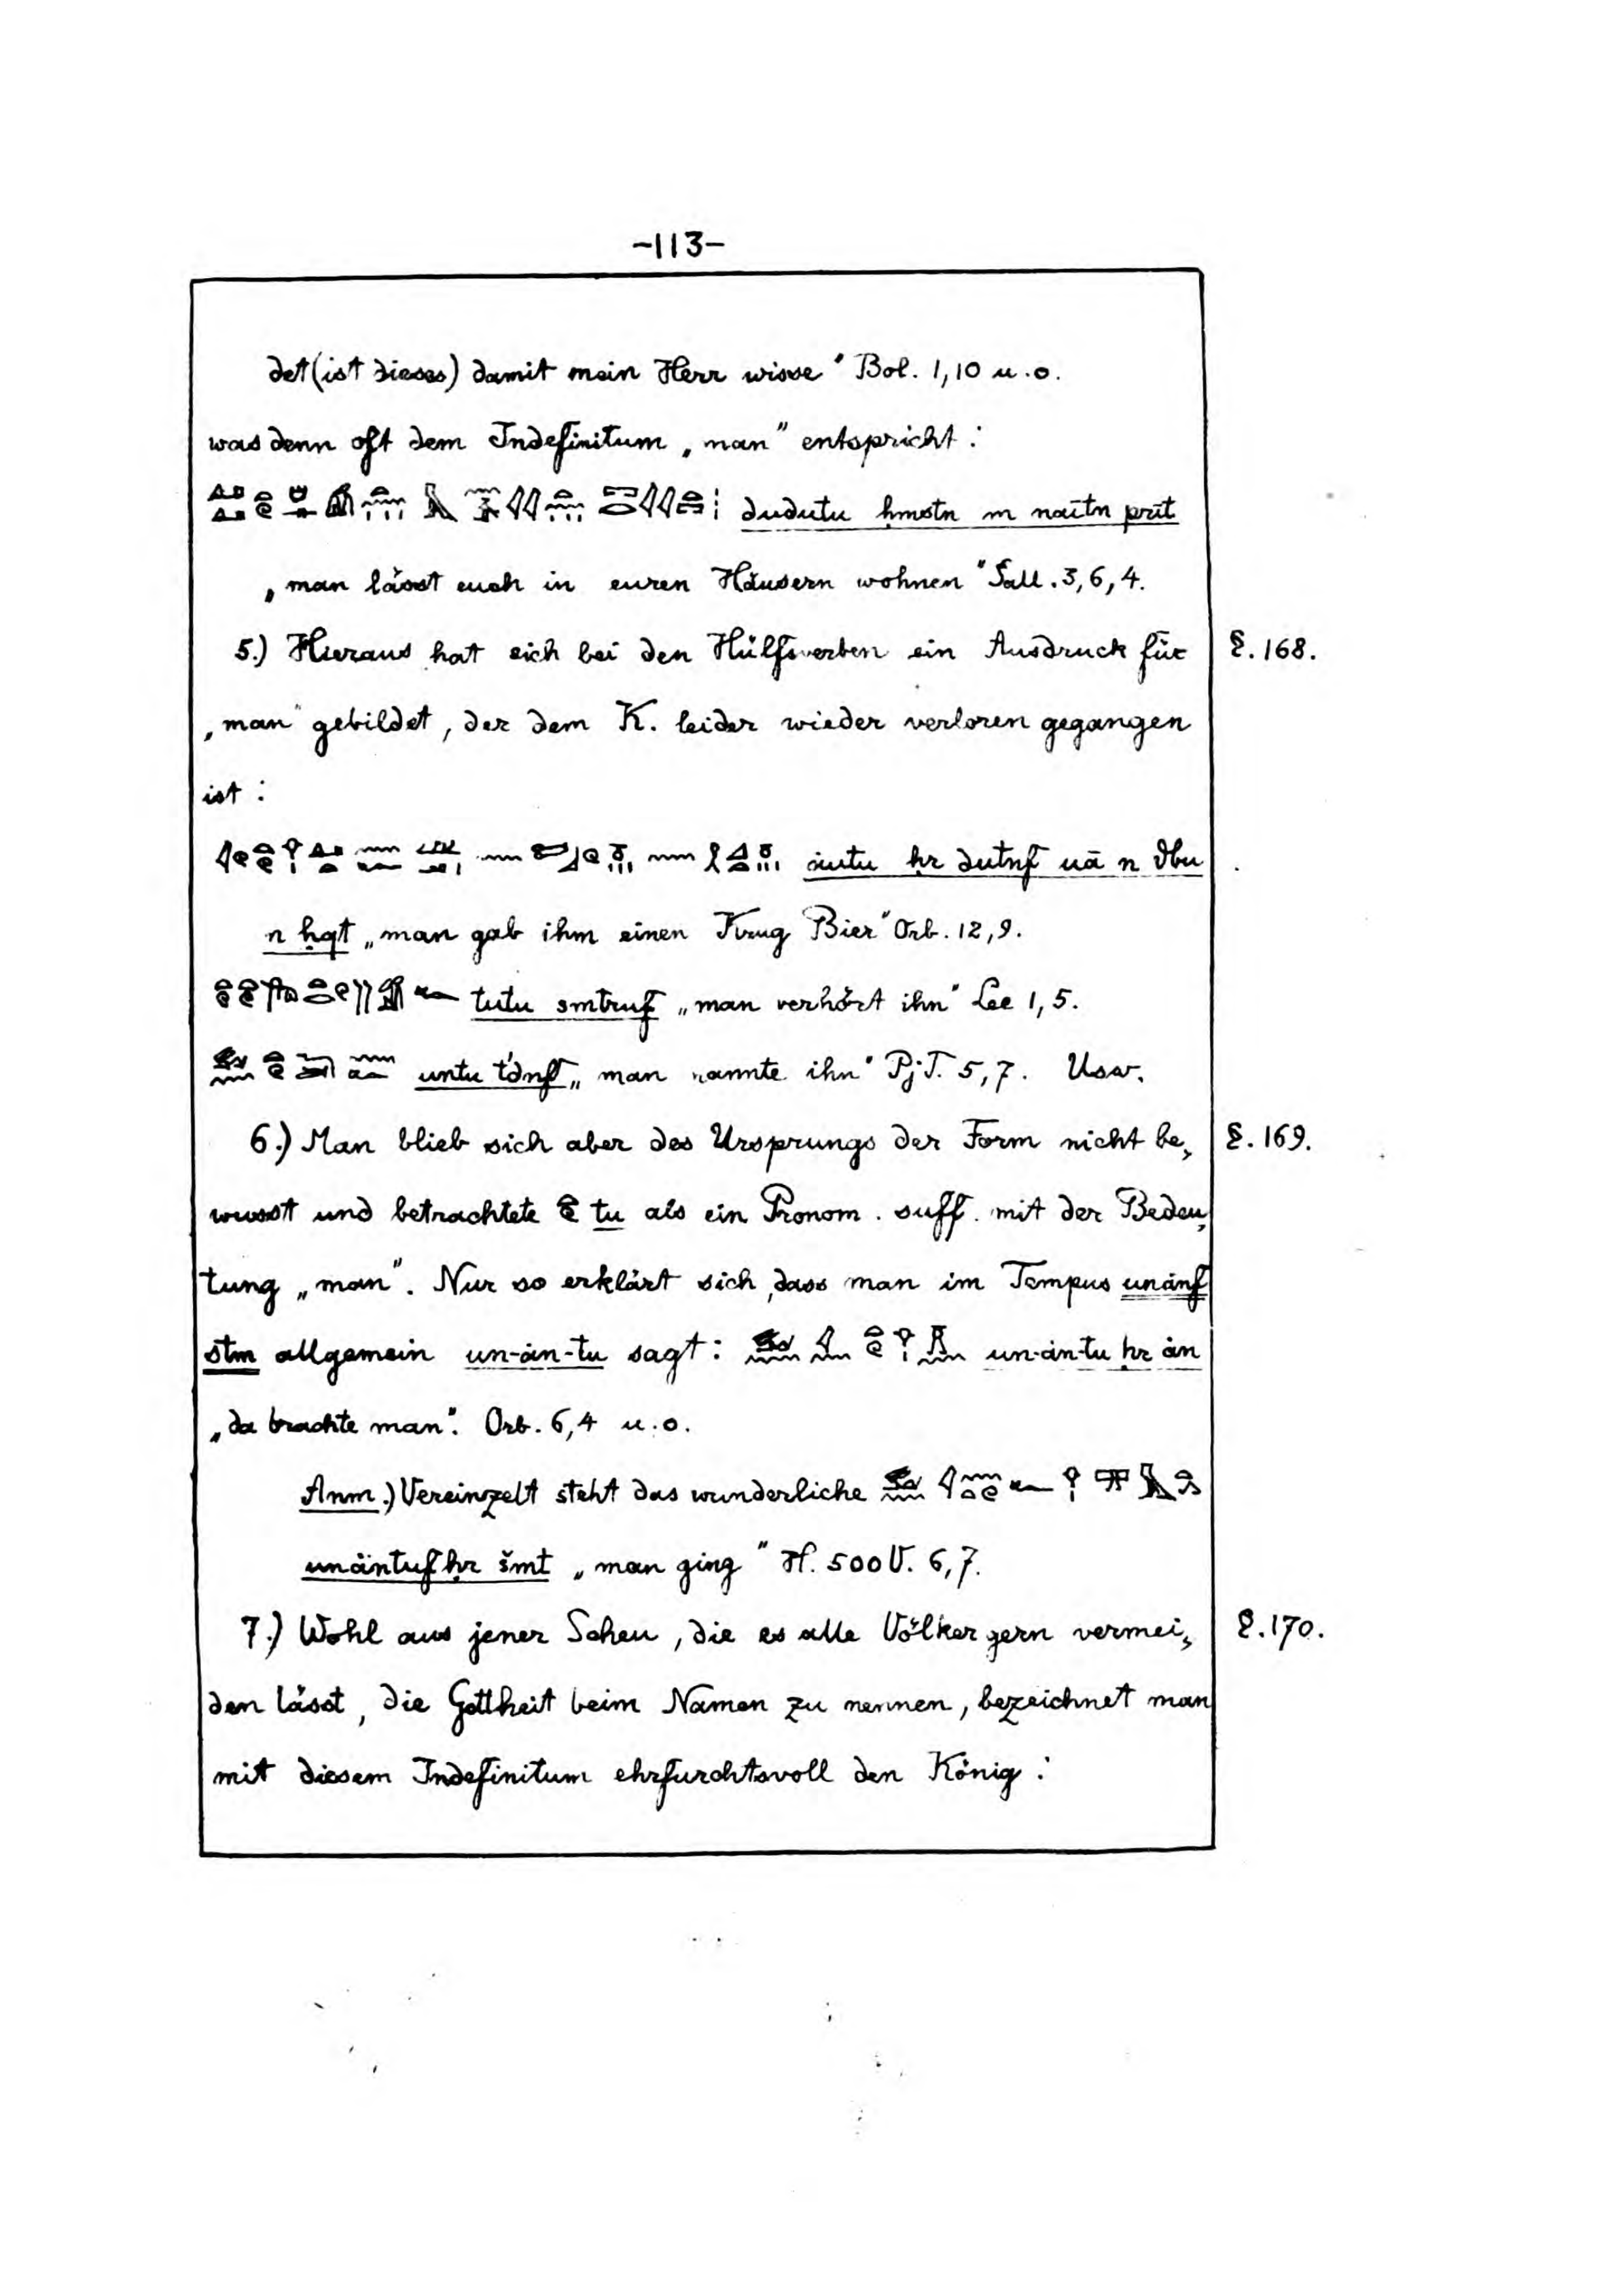 -113-
det (ist dieses) damit mein Herr wisse" Bol. 1,10 u.o.
was denn oft dem Indefinitum „man" entspricht:
dudutu ḥmstn m naītn prīt
„man lässt euch in euren Häusern wohnen" Sall. 3,6,4.
5.) Hieraus hat sich bei den Hülfsverben ein Ausdruck für §. 168.
„man" gebildet, der dem K. leider wieder verloren gegangen
ist:
ȧutu ḥr dutnf uā n
n ḥqt „man gab ihm einen Krug Bier" Orb. 12,9.
tutu smtruf „man verhört ihn" Lee 1,5.
untu „man nannte ihn" Pj.T. 5,7. Usw.
6.) Man blieb sich aber des Ursprungs der Form nicht be- §. 169.
wusst und betrachtete tu als ein Pronom. suff. mit der Bedeu-
tung „man". Nur so erklärt sich, dass man im Tempus unȧnf
stm allgemein un-ȧn-tu sagt: un-ȧn-tu ḥr ȧn
„da brachte man". Orb. 6,4 u.o.
Anm.) Vereinzelt steht das wunderliche
unȧntuf ḥr šmt „man ging" H. 500 V. 6,7.
7.) Wohl aus jener Scheu, die es alle Völker gern vermei- §. 170.
den lässt, die Gottheit beim Namen zu nennen, bezeichnet man
mit diesem Indefinitum ehrfurchtsvoll den König: